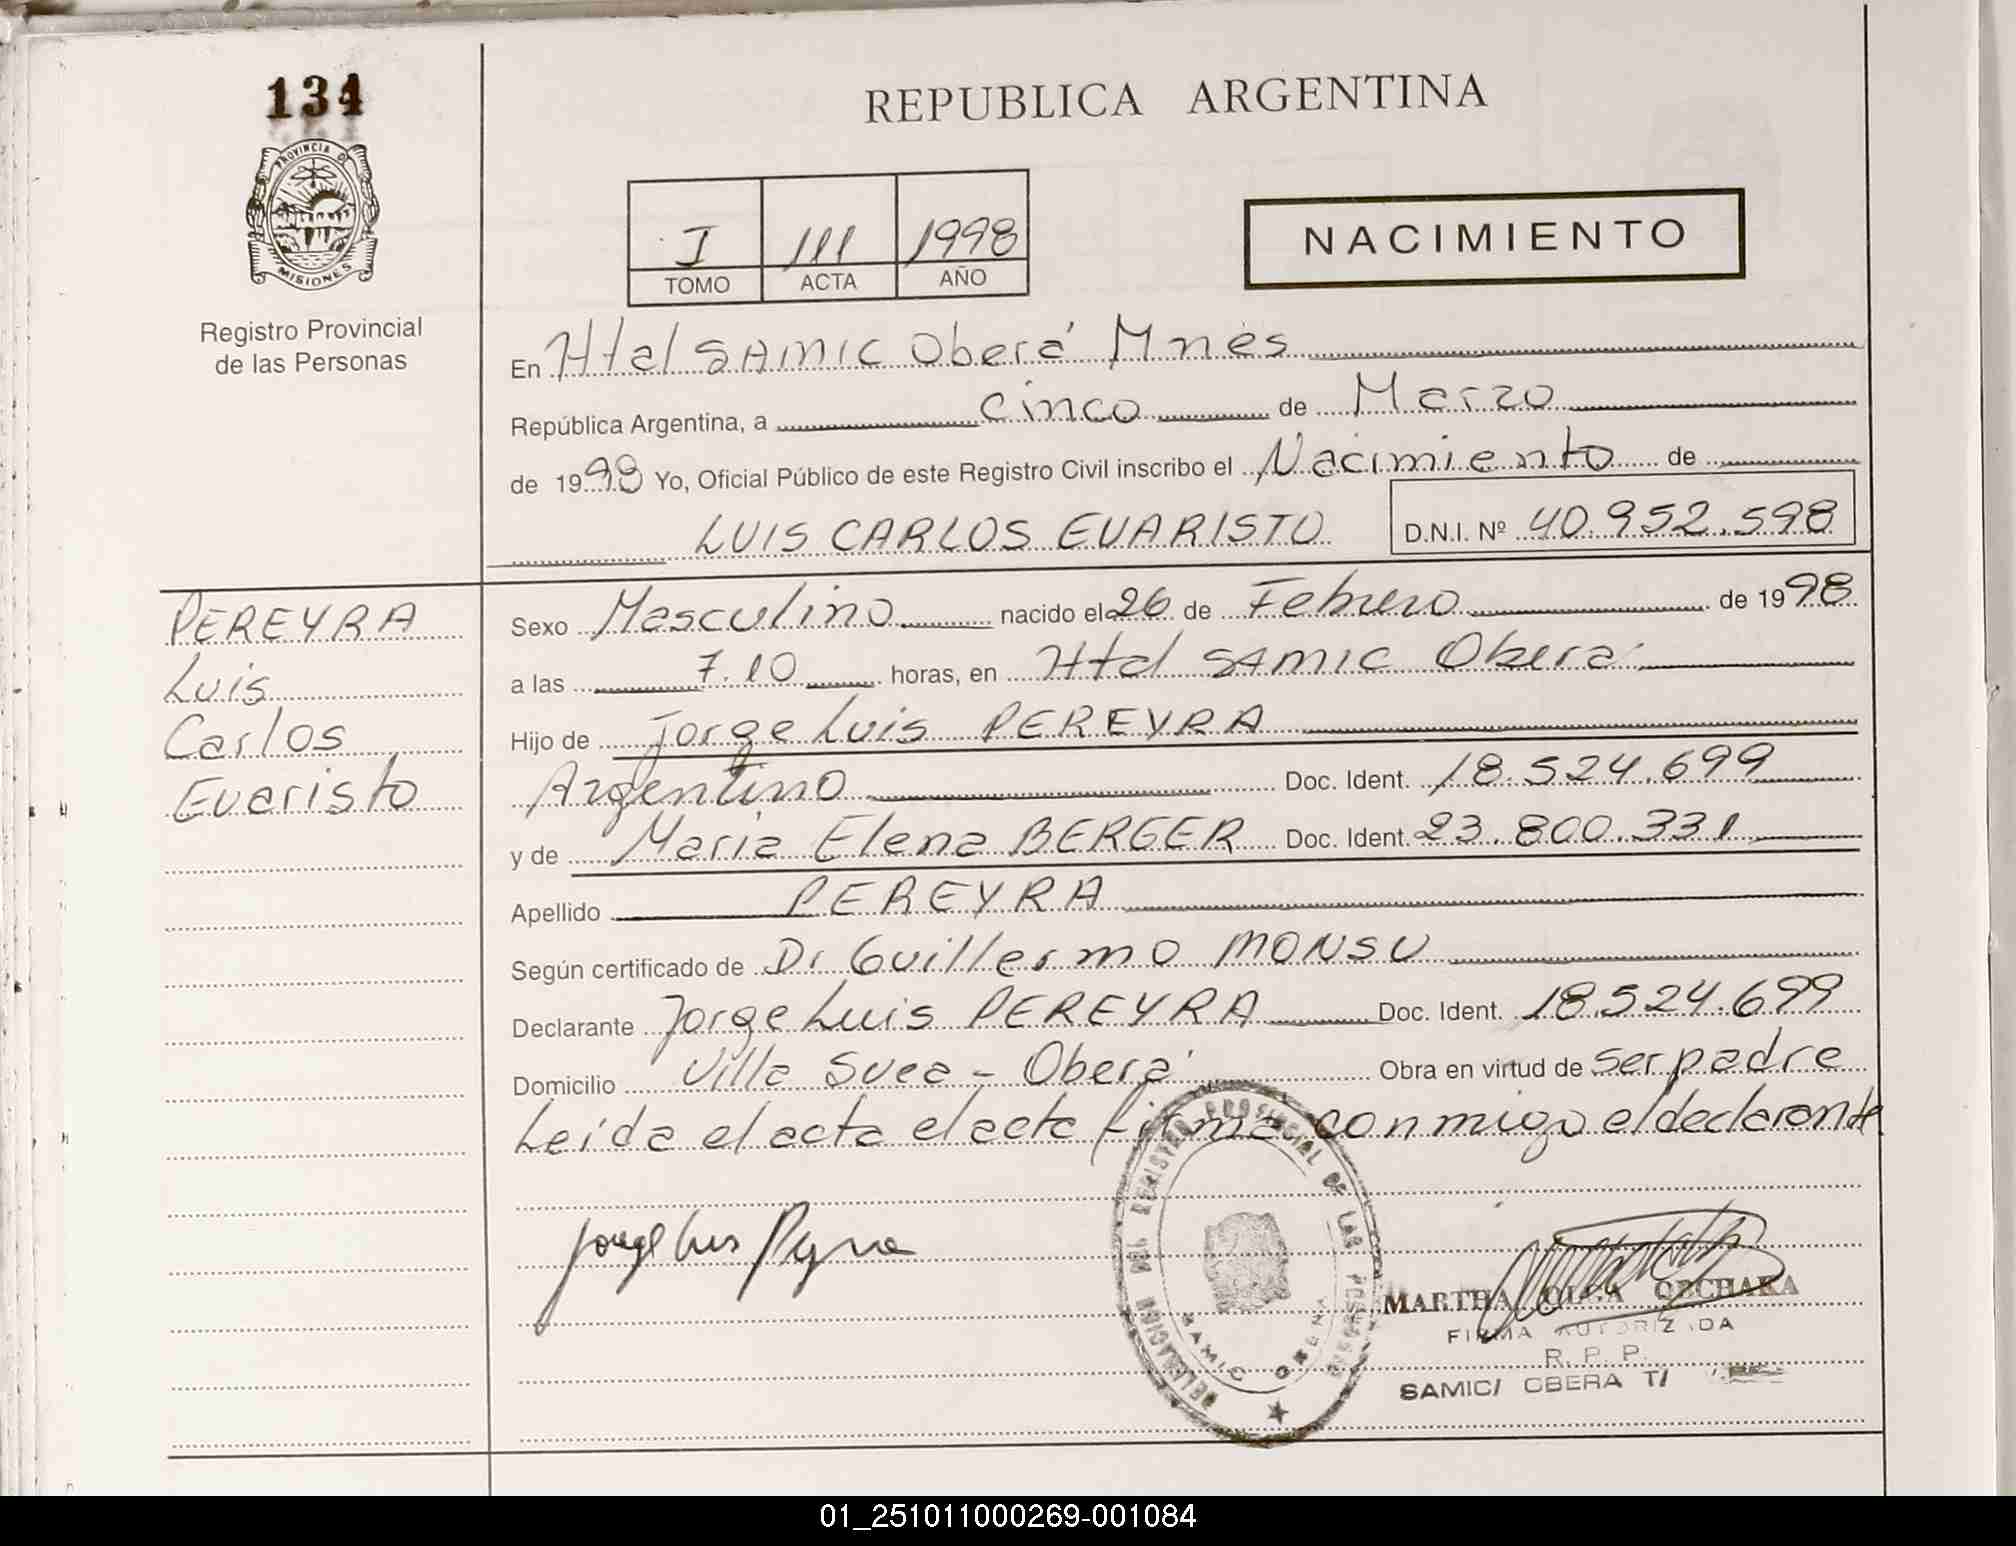 134
PROVINCIA DE
MISIONES
Registro Provincial
de las Personas
REPUBLICA ARGENTINA
I 111 1998
TOMO ACTA AÑO
NACIMIENTO
En Htal SAMIC Oberá Mnes
República Argentina, a cinco de Marzo
de 1998 Yo, Oficial Público de este Registro Civil inscribo el Nacimiento de
LUIS CARLOS EVARISTO D.N.I. Nº 40.952.598
PEREYRA
Luis
Carlos
Evaristo
Sexo Masculino nacido el 26 de Febrero de 1998
a las 7.10 horas, en Htal SAMIC Oberá
Hijo de Jorge Luis PEREYRA
Argentino Doc. Ident. 18.524.699
y de Maria Elena BERGER Doc. Ident. 23.800.331
Apellido PEREYRA
Según certificado de Dr Guillermo MONSU
Declarante Jorge Luis PEREYRA Doc. Ident. 18.524.699
Domicilio Villa Svea - Oberá Obra en virtud de ser padre
Leída el acta el acta firma conmigo el declarante
DELEGACION DEL REGISTRO PROVINCIAL DE LAS PERSONAS
SAMIC OBERA
Jorge Luis Pereyra
MARTHA OLGA
FIRMA AUTORIZADA
R. P. P.
SAMIC/ OBERA T/
01_251011000269-001084